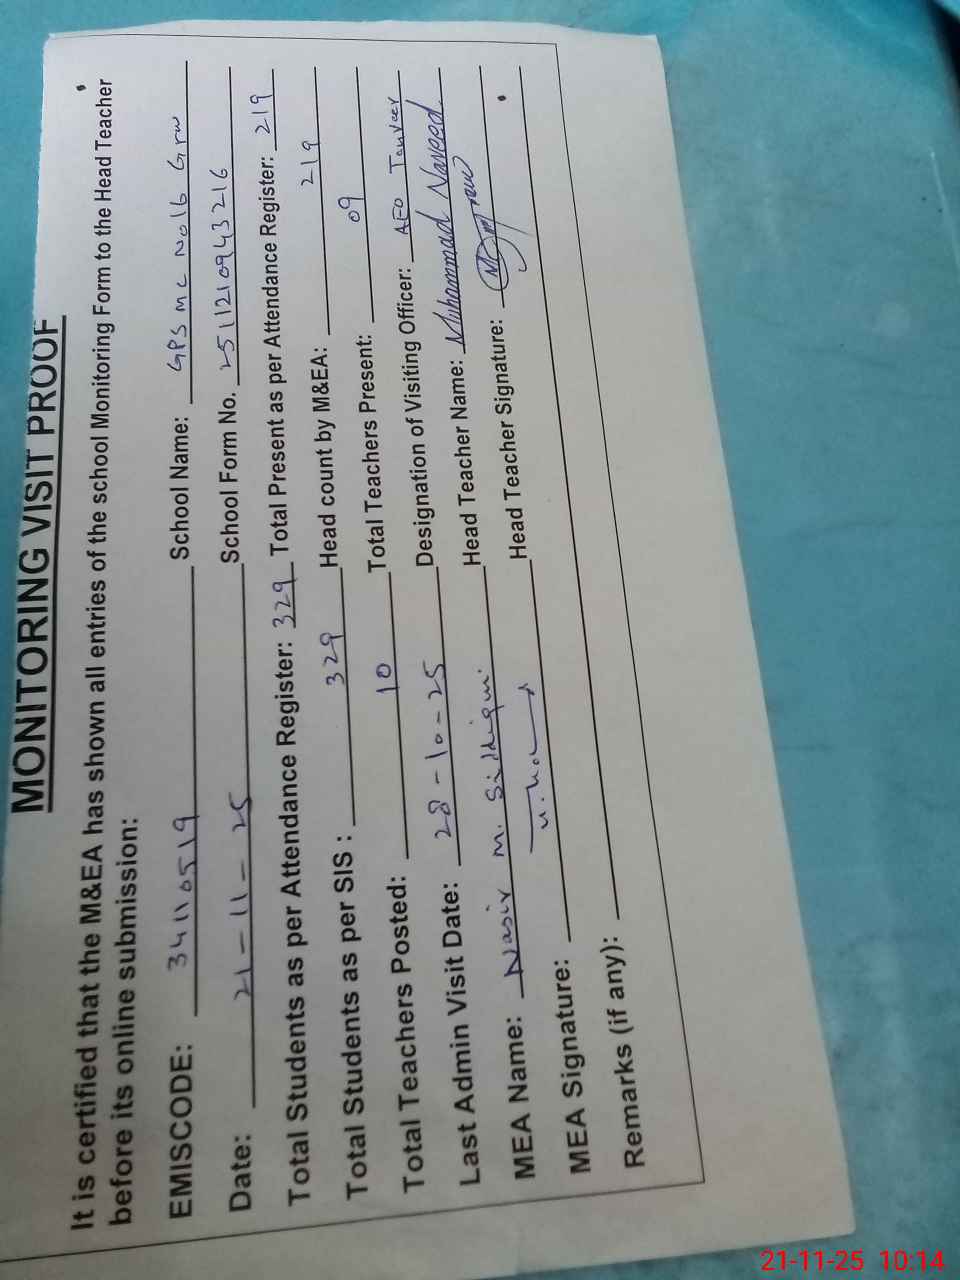 MONITORING VISIT PROOF
It is certified that the M&EA has shown all entries of the school Monitoring Form to the Head Teacher
before its online submission:
EMISCODE: 34110519 School Name: GPS MC No16 Grw
Date: 21-11-25 School Form No. 2511210943216
Total Students as per Attendance Register: 329 Total Present as per Attendance Register: 219
Total Students as per SIS : 329 Head count by M&EA: 219
Total Teachers Posted: 10 Total Teachers Present: 09
Last Admin Visit Date: 28-10-25 Designation of Visiting Officer: AEO Tanveer
MEA Name: Nasir M. Siddiqui Head Teacher Name: Muhammad Naveed
MEA Signature: Head Teacher Signature:
Remarks (if any):
21-11-25 10:14